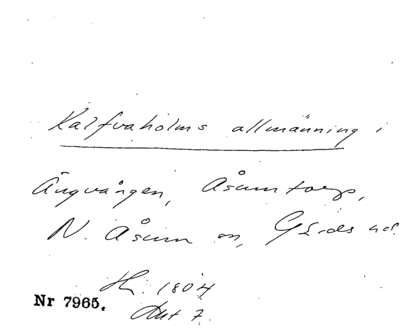 Kalfvaholms allmänning i
Ängvången, Åsumtorp,
N. Åsum sn, Gärds hd.
Hs. 1804
Nr 7965. Akt 7